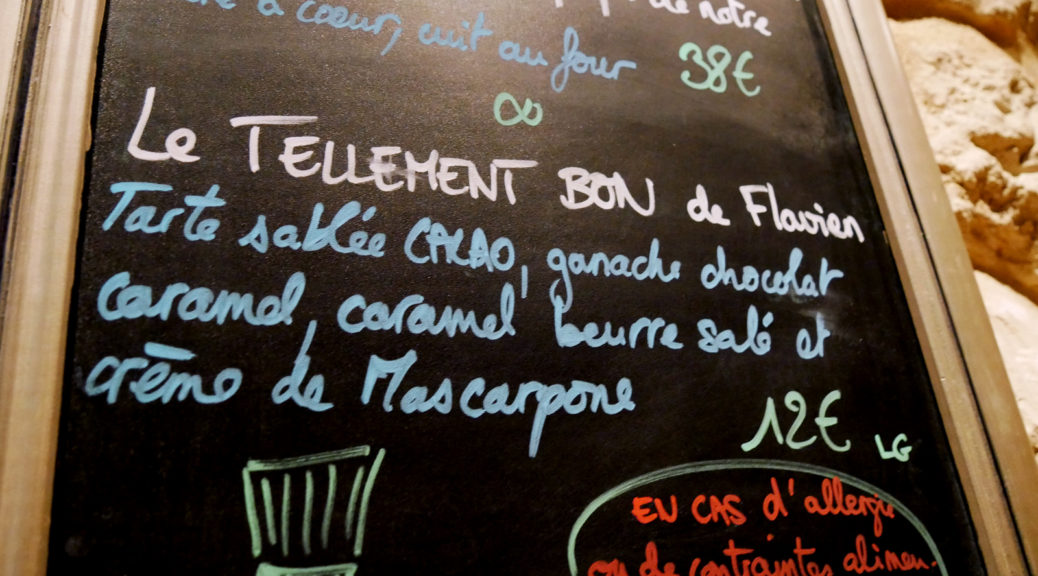 à coeur, cuit au four
de notre
38€
Le TELLEMENT BON de Flavien
Tarte sablée CACAO, ganache chocolat
caramel, caramel beurre salé et
crème de Mascarpone
12€
LG
EN CAS d'allergie
ou de contraintes alimen-